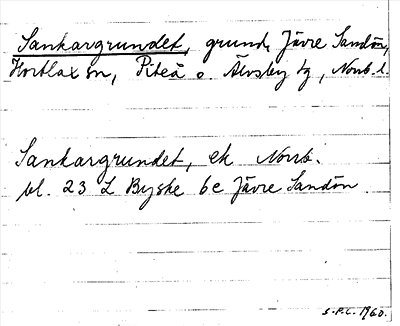 Sankargrundet, grund, Jävre Sandön,
Hortlax sn, Piteå o. Älvsby tg, Norrb. l.
Sankargrundet, ek Norrb.
bl. 23 L Byske 6e Jävre Sandön.
S.P.C. 1960.